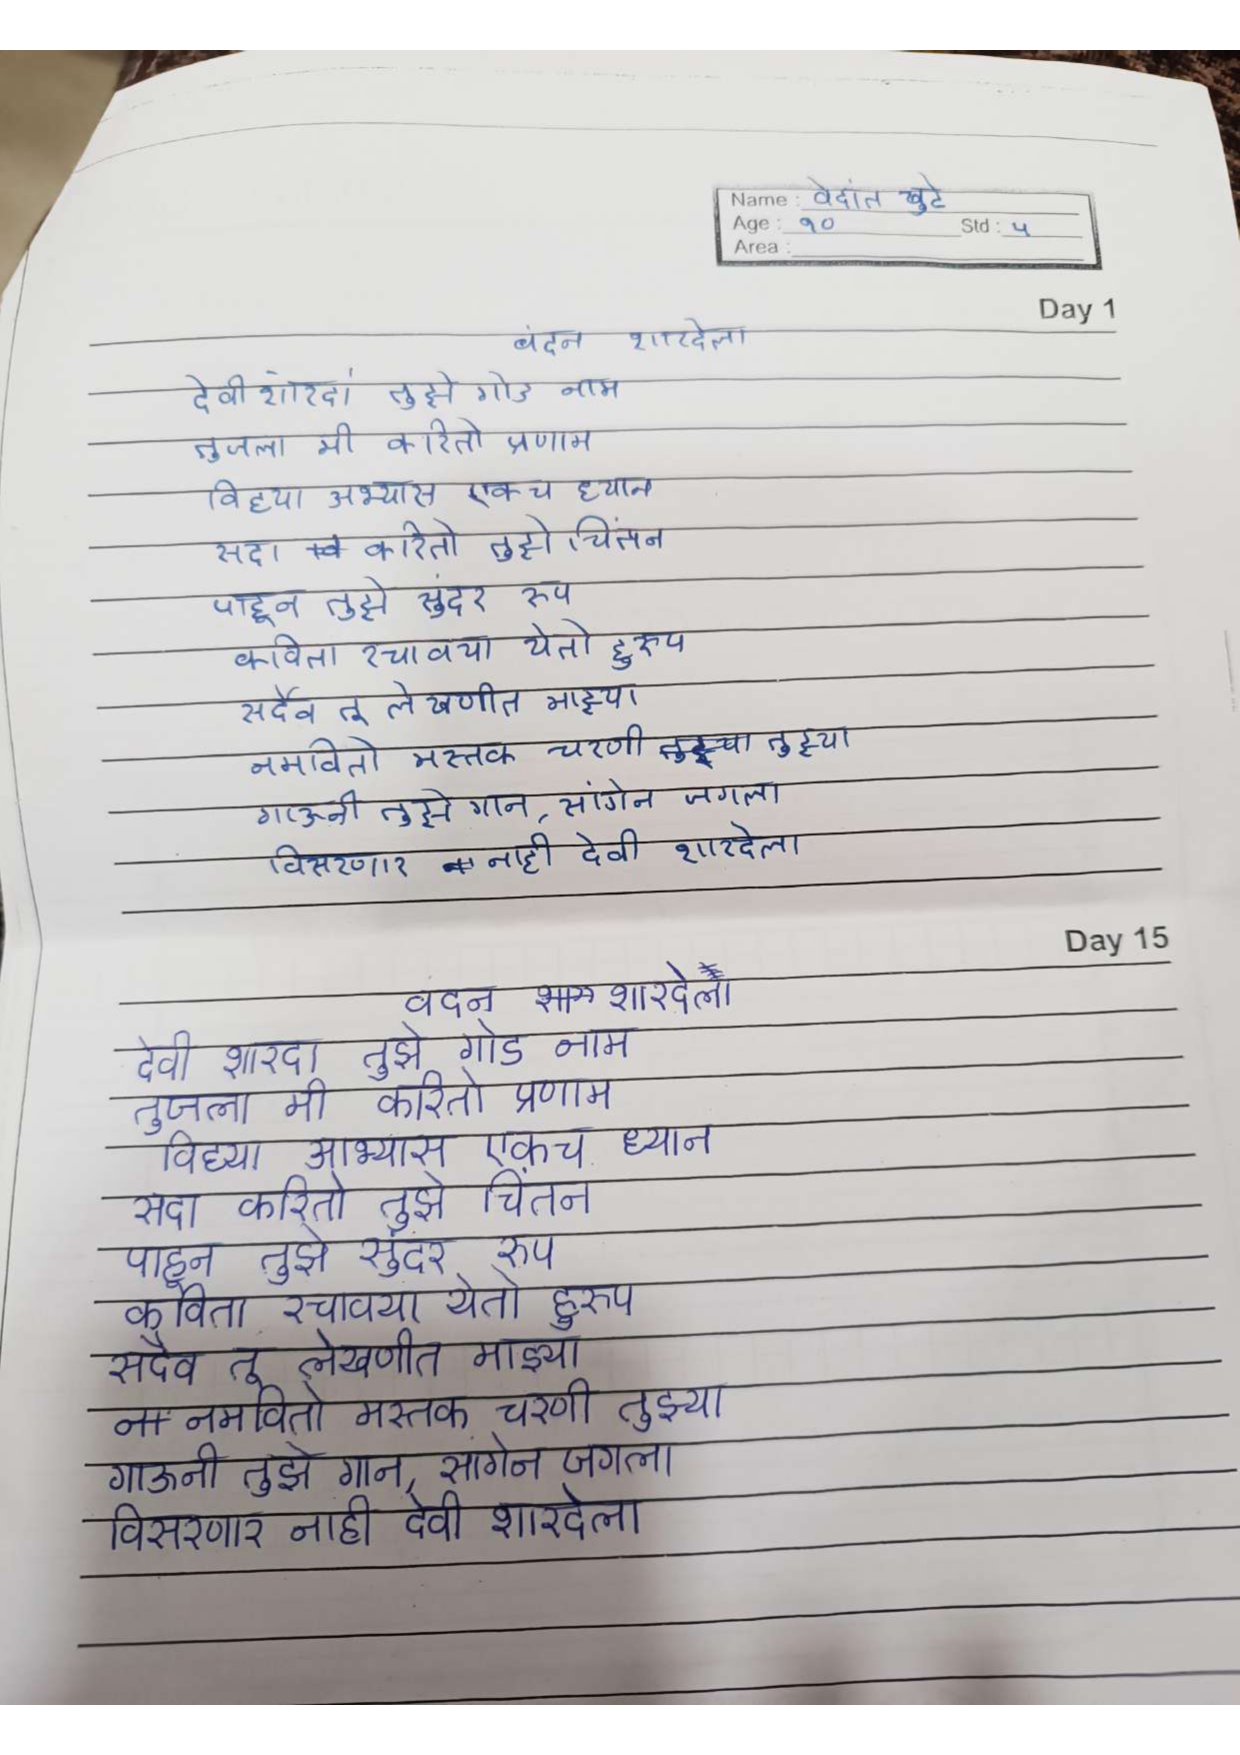 Name : वेदांत खुटे
Age : १० Std : ५
Area :
Day 1
वंदन शारदेला
देवी शारदा तुझे गोड नाम
तुजला मी करितो प्रणाम
विद्या अभ्यास एकच ध्यान
सदा करितो तुझे चिंतन
पाहून तुझे सुंदर रुप
कविता रचावया येतो हुरुप
सदैव तू लेखणीत माझ्या
नमवितो मस्तक चरणी तुझ्या
गाऊनी तुझे गान, सांगेन जगला
विसरणार नाही देवी शारदेला
Day 15
वदन शारदेला
देवी शारदा तुझे गोड नाम
तुजला मी करितो प्रणाम
विद्या आभ्यास एकच ध्यान
सदा करितो तुझे चिंतन
पाहून तुझे सुंदर रुप
कविता रचावया येतो हुरुप
सदैव तू लेखणीत माझ्या
नमवितो मस्तक चरणी तुझ्या
गाऊनी तुझे गान, सांगेन जगला
विसरणार नाही देवी शारदेला